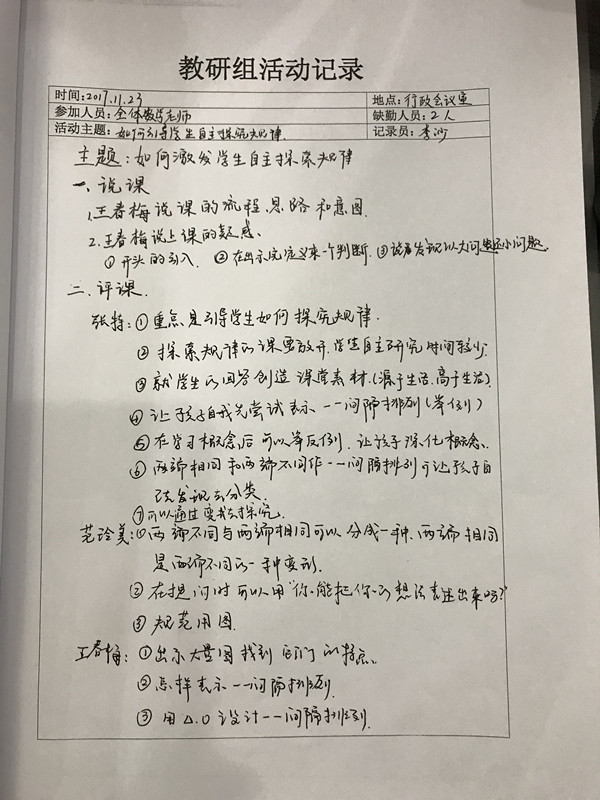 教研组活动记录
时间:2017.11.23 地点:行政会议室
参加人员:全体数学老师 缺勤人员:2人
活动主题:如何引导学生自主探究规律 记录员:李沙
主题:如何激发学生自主探索规律
一、说课
1.王春梅说课的流程、思路和意图.
2.王春梅说上课的疑惑、
①开头的引入. ②在出示完定义来一个判断. ③说着发现以大问题还小问题.
二、评课.
张特:①重点是引导学生如何探究规律.
②探索规律的课要放开,学生自主研究时间较少.
③就学生的回答创造课堂素材.(源于生活.高于生活).
④让孩子自我先尝试表示一一间隔排列(举例)
⑤在学习概念后可以举反例.让孩子深化概念.
⑥两端相同和两端不同作一一间隔排列可让孩子自
己发现去分类.
⑦可以通过变式去探究.
范玲美:①两端不同与两端相同可以分成一种、两端相同
是两端不同的一种变形.
②在提问时可以用“你能把你的想法表述出来吗?”
③规范用图.
王春梅:①出示大盘图找到它们的特点、
②怎样表示一一间隔排列.
③用△.O设计一一间隔排列.